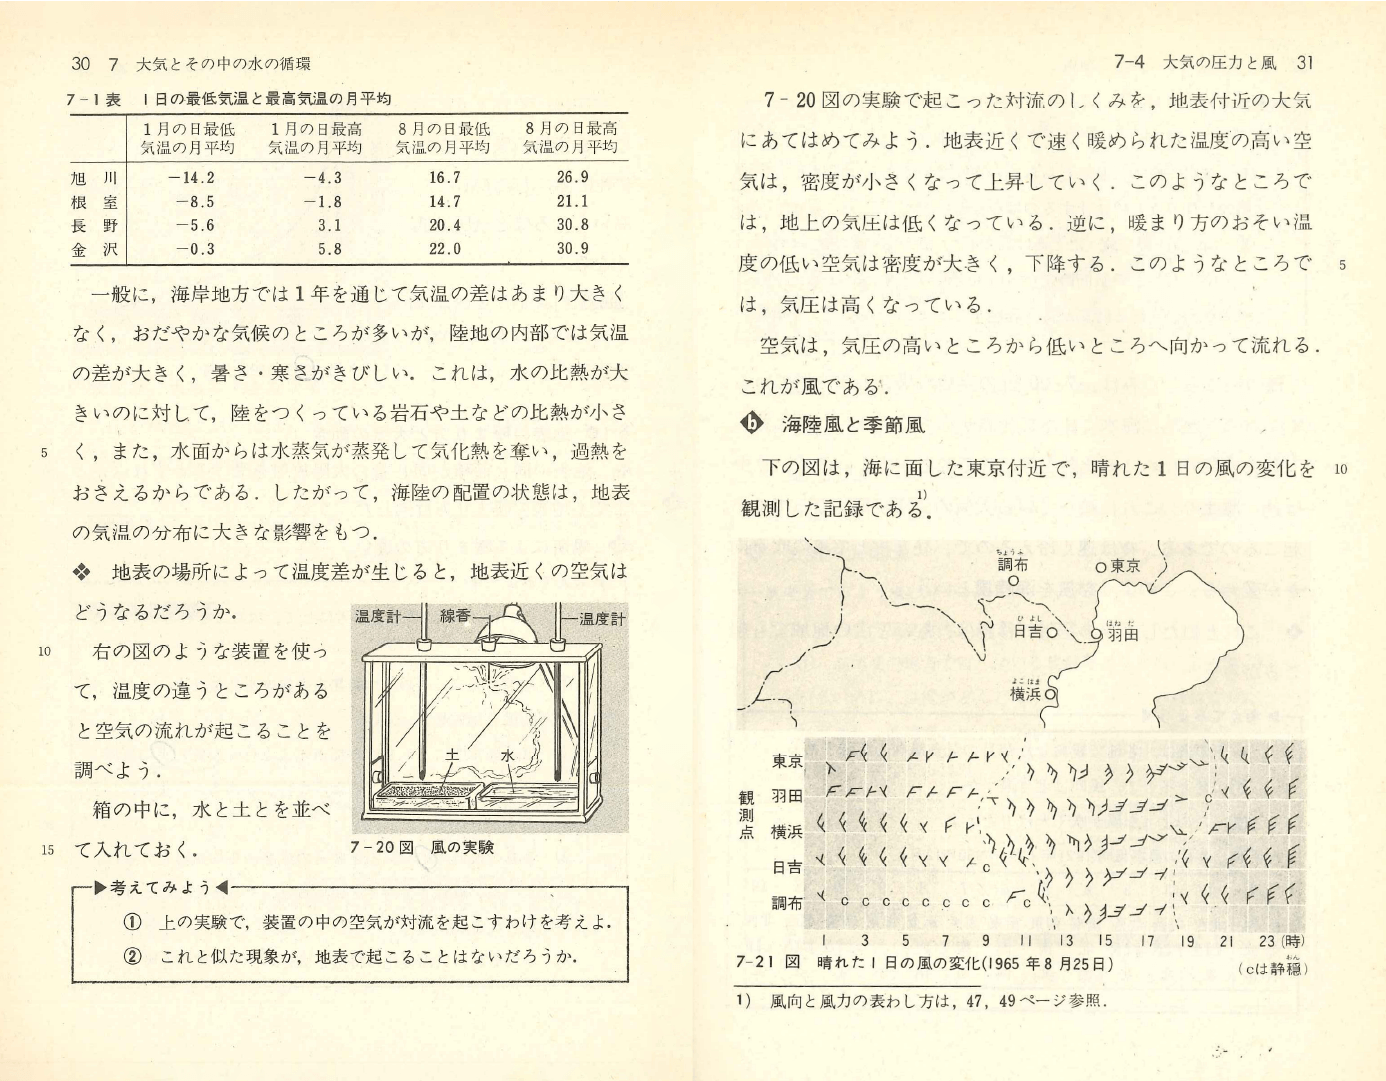 30 7 大気とその中の水の循環
7-1表 1日の最低気温と最高気温の月平均
1月の日最低気温の月平均 1月の日最高気温の月平均 8月の日最低気温の月平均 8月の日最高気温の月平均
旭川 -14.2 -4.3 16.7 26.9
根室 -8.5 -1.8 14.7 21.1
長野 -5.6 3.1 20.4 30.8
金沢 -0.3 5.8 22.0 30.9
一般に，海岸地方では1年を通じて気温の差はあまり大きく
なく，おだやかな気候のところが多いが，陸地の内部では気温
の差が大きく，暑さ・寒さがきびしい．これは，水の比熱が大
きいのに対して，陸をつくっている岩石や土などの比熱が小さ
5 く，また，水面からは水蒸気が蒸発して気化熱を奪い，過熱を
おさえるからである．したがって，海陸の配置の状態は，地表
の気温の分布に大きな影響をもつ．
❖ 地表の場所によって温度差が生じると，地表近くの空気は
どうなるだろうか．
10 右の図のような装置を使っ
て，温度の違うところがある
と空気の流れが起こることを
調べよう．
箱の中に，水と土とを並べ
15 て入れておく．
温度計 線香 温度計
土 水
7-20図 風の実験
▶考えてみよう◀
① 上の実験で，装置の中の空気が対流を起こすわけを考えよ．
② これと似た現象が，地表で起こることはないだろうか．
7-4 大気の圧力と風 31
7-20図の実験で起こった対流のしくみを，地表付近の大気
にあてはめてみよう．地表近くで速く暖められた温度の高い空
気は，密度が小さくなって上昇していく．このようなところで
は，地上の気圧は低くなっている．逆に，暖まり方のおそい温
度の低い空気は密度が大きく，下降する．このようなところで 5
は，気圧は高くなっている．
空気は，気圧の高いところから低いところへ向かって流れる．
これが風である．
ⓑ 海陸風と季節風
下の図は，海に面した東京付近で，晴れた1日の風の変化を 10
観測した記録である．1)
ちょうふ
調布 東京
ひよし はねだ
日吉 羽田
よこはま
横浜
観測点
東京
羽田 c
横浜
日吉 c
調布 c c c c c c c c c
1 3 5 7 9 11 13 15 17 19 21 23 (時)
7-21図 晴れた1日の風の変化(1965年8月25日)
(cは静穏)
おん
1) 風向と風力の表わし方は，47，49ページ参照．